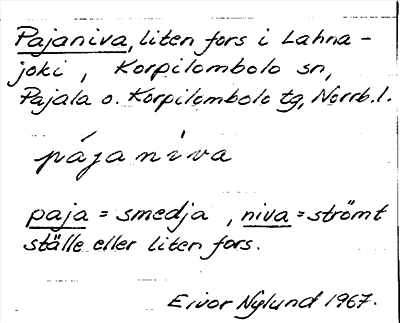 Pajaniva, liten fors i Lahna-
joki, Korpilombolo sn,
Pajala o. Korpilombolo tg, Norrb. l.
pájanìva
paja = smedja, niva = strömt
ställe eller liten fors.
Eivor Nylund 1967.